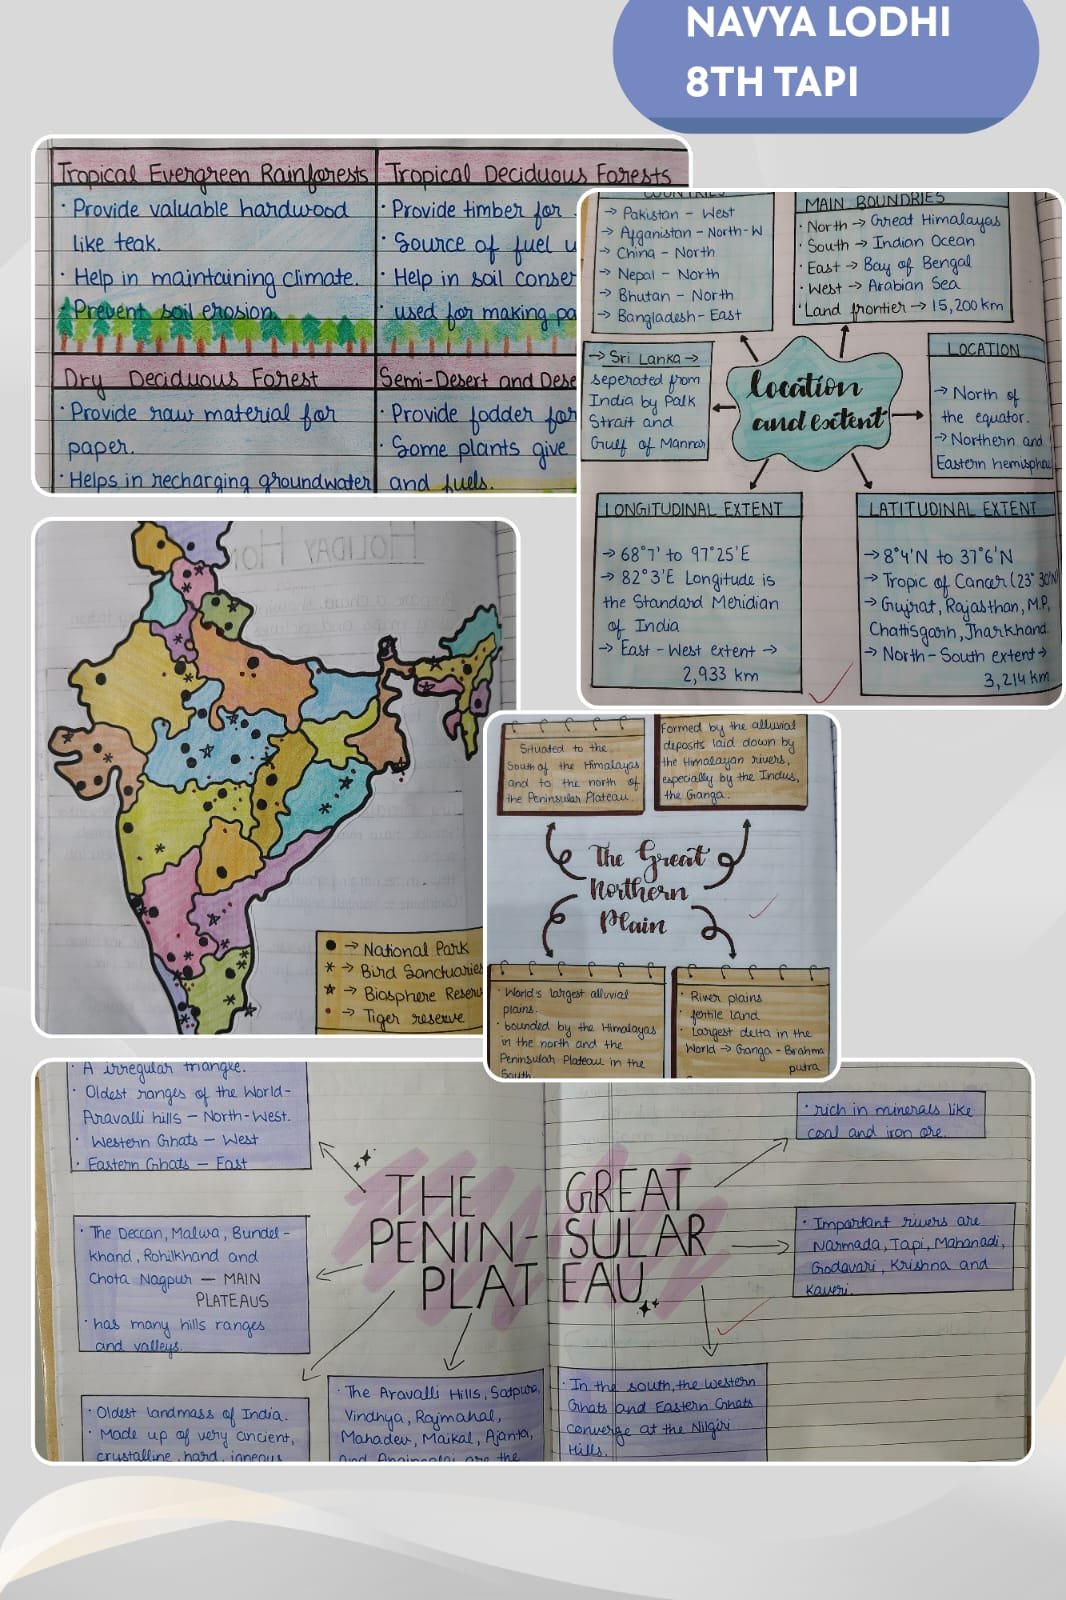 NAVYA LODHI
8TH TAPI
Tropical Evergreen Rainforests
· Provide valuable hardwood
like teak.
· Help in maintaining climate.
· Prevent soil erosion.
Tropical Deciduous Forests
· Provide timber for
· Source of fuel
· Help in soil conser
· used for making pa
Dry Deciduous Forest
· Provide raw material for
paper.
· Helps in recharging groundwater
Semi-Desert and Dese
· Provide fodder for
· Some plants give
and fuels.
COUNTRIES
→ Pakistan - West
→ Afganistan - North-W
→ China - North
→ Nepal - North
→ Bhutan - North
→ Bangladesh - East
MAIN BOUNDRIES
· North → Great Himalayas
· South → Indian Ocean
· East → Bay of Bengal
· West → Arabian Sea
· Land frontier → 15,200 km
→ Sri Lanka →
seperated from
India by Palk
Strait and
Gulf of Mannar
location
and extent
LOCATION
→ North of
the equator.
→ Northern and
Eastern hemisphe
LONGITUDINAL EXTENT
→ 68°7' to 97°25'E
→ 82°3'E Longitude is
the Standard Meridian
of India
→ East - West extent →
2,933 km
LATITUDINAL EXTENT
→ 8°4'N to 37°6'N
→ Tropic of Cancer (23°30'N)
→ Gujrat, Rajasthan, M.P,
Chattisgarh, Jharkhand.
→ North - South extent →
3,214 km
HOLIDAY HO
● → National Park
* → Bird Sanctuaries
★ → Biosphere Reserv
• → Tiger reserve
Situated to the
South of the Himalayas
and to the north of
the Peninsular Plateau.
Formed by the alluvial
deposits laid down by
the Himalayan rivers,
especially by the Indus,
the Ganga.
The Great
Northern
Plain
· World's largest alluvial
plains.
· bounded by the Himalayas
in the north and the
Peninsular Plateau in the
South
· River plains
· fertile land
· Largest delta in the
World → Ganga - Brahma
putra
· A irregular triangle.
· Oldest ranges of the World-
Aravalli hills - North-West.
· Western Ghats - West
· Eastern Ghats - East
THE GREAT
PENIN-SULAR
PLATEAU
· rich in minerals like
coal and iron ore.
· The Deccan, Malwa, Bundel-
khand, Rohilkhand and
Chota Nagpur — MAIN
PLATEAUS
· has many hills ranges
and valleys.
· Important rivers are
Narmada, Tapi, Mahanadi,
Godavari, Krishna and
Kaveri.
· Oldest landmass of India.
· Made up of very ancient,
crystalline, hard, igneous
· The Aravalli Hills, Satpura,
Vindhya, Rajmahal,
Mahadev, Maikal, Ajanta,
are the
· In the south, the Western
Ghats and Eastern Ghats
converge at the Nilgiri
Hills.